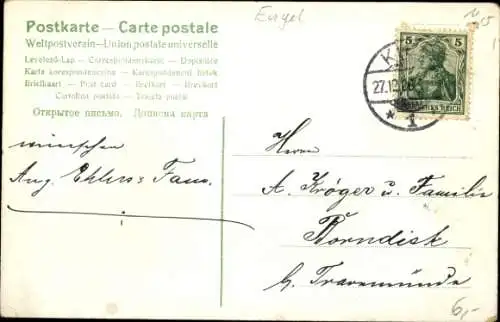 Engel
Postkarte – Carte postale
Weltpostverein – Union postale universelle
Levelező-Lap – Correspondenzkarte – Dopisnice
Karta korespondencyjna – Korespondenčni listek
Briefkaart – Post card – Brefkort – Brevkort
Cartolina postale – Tarjeta postal
Открытое письмо. Дописна карта
wünschen
Aug. Ehlers u. Fam.
5 5
27.12.
REICH
* 1
Herrn
A. Kröger u. Familie
Borndiek
b. Travemünde
6,-